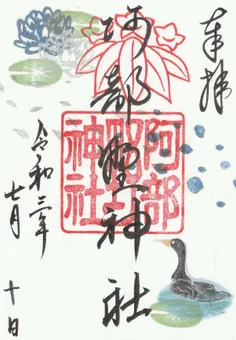 奉拝
阿部野神社
阿部
野
神社
令和三年
七月
十日